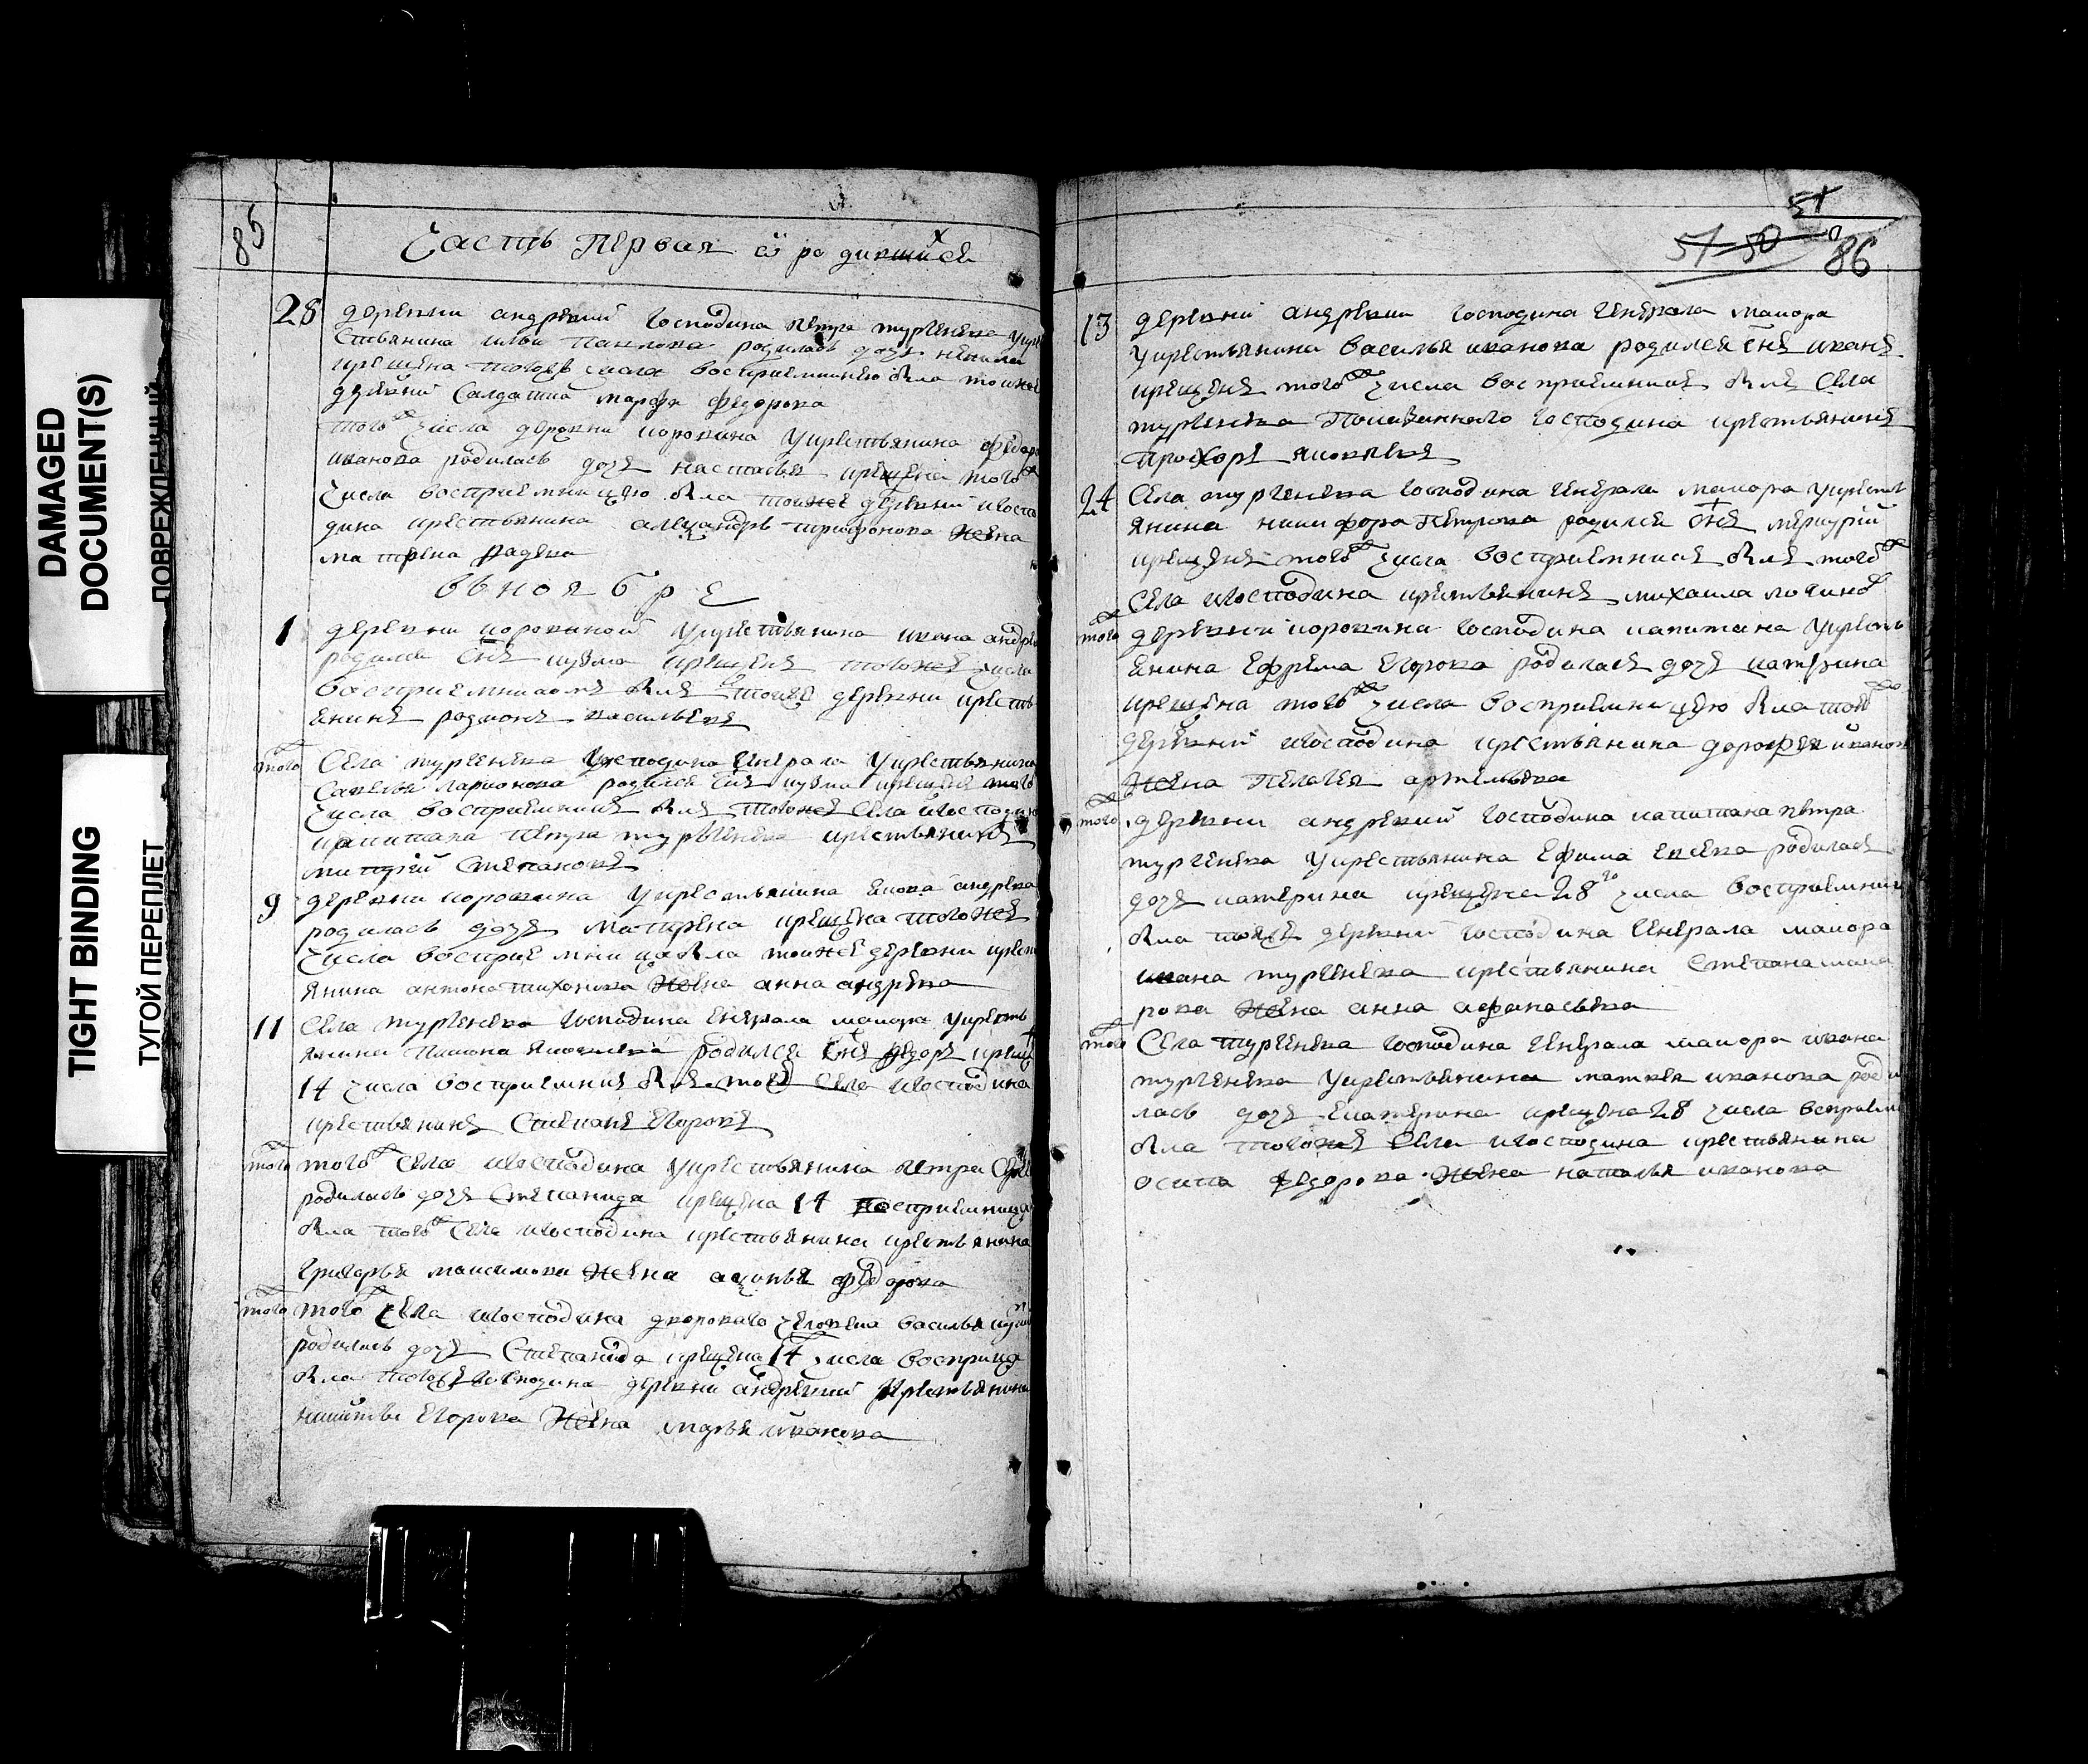 DAMAGED
DOCUMENT(S)
ПОВРЕЖДЕННЫЙ
TIGHT BINDING
ТУГОЙ ПЕРЕПЛЕТ
85
Часть Первая ѿ родившихся
28 деревни андреевки господина петра тургенева укре
стьянина ильи Павлова родилась дочь
крещена тогожъ числа восприемницею была тоиже
деревни Салдатка марфа федорова
того же числа деревни коровина укрестьянина федора
иванова родилась дочь настасья крещена того же
числа восприемницею была тоиже деревни игоспо
дина крестьянина александръ трифонова жена
матрена
вноябре
1 деревни коровиной укрестьянина ивана андре
родился снъ кузма крещенъ тогоже числа
восприемникомъ былъ тоиже деревни кресть
янинъ родионъ васильевъ
того Села тургенева господина генерала укрестьянина
Савелья ларионова родился снъ кузма крещенъ того
числа восприемникъ былъ тогоже Села игосподина
капитана Петра тургенева крестьянинъ
Степановъ
9 деревни коровина укрестьянина якова андреева
родилась дочь матрена крещена тогоже
числа восприемница была тоиже деревни крест
янина антона тиханова жена анна андреева
11 Села тургенева господина генерала маиора укресть
янина яковлева родился снъ федоръ креще
14 числа восприемникъ былъ того Села игосподина
крестьянинъ Степанъ Егоровъ
того того же Села игосподина укрестьянина петра
родилась дочь Степанида крещена 14 восприемница
была того же Села игосподина крестьянина крестьянина
Григорья максимова жена федорова
того того же Села игосподина двороваго человека василья
родилась дочь Степанида крещена 14 числа восприца
была господина деревни андреевки крестьянина
никиты Егорова жена марья иванова
51
51 50 86
13 деревни андреевки господина генерала маиора
укрестьянина василья иванова родился снъ иванъ
крещенъ того же числа восприемникъ былъ Села
тургенева Показанного господина крестьянинъ
Прохоръ яковлевъ
24 Села тургенева господина генерала маиора укрест
янина никифора Петрова родился снъ меркурий
крещенъ того же числа восприемникъ былъ того же
Села игосподина крестьянинъ михаила логинов
того деревни коровина господина капитана укресть
янина Ефрема Егорова родилась дочь катерина
крещена того же числа восприемницею была той же
деревни игосподина крестьянина дорофея иванов
жена Пелагея артемьева
того деревни андреевкий господина капитана петра
тургенева укрестьянина Ефима родилась
дочь катерина крещена 28го числа восприемниц
была тояже деревни господина генерала маиора
ивана тургенева крестьянина Степана мака
рова жена анна афанасьева
того Села тургенева господина генерала маиора ивана
тургенева укрестьянина матвея иванова роди
лась дочь Екатерина крещена 28 числа восприем
была тогоже Села игосподина крестьянина
осипа федорова жена наталья иванова